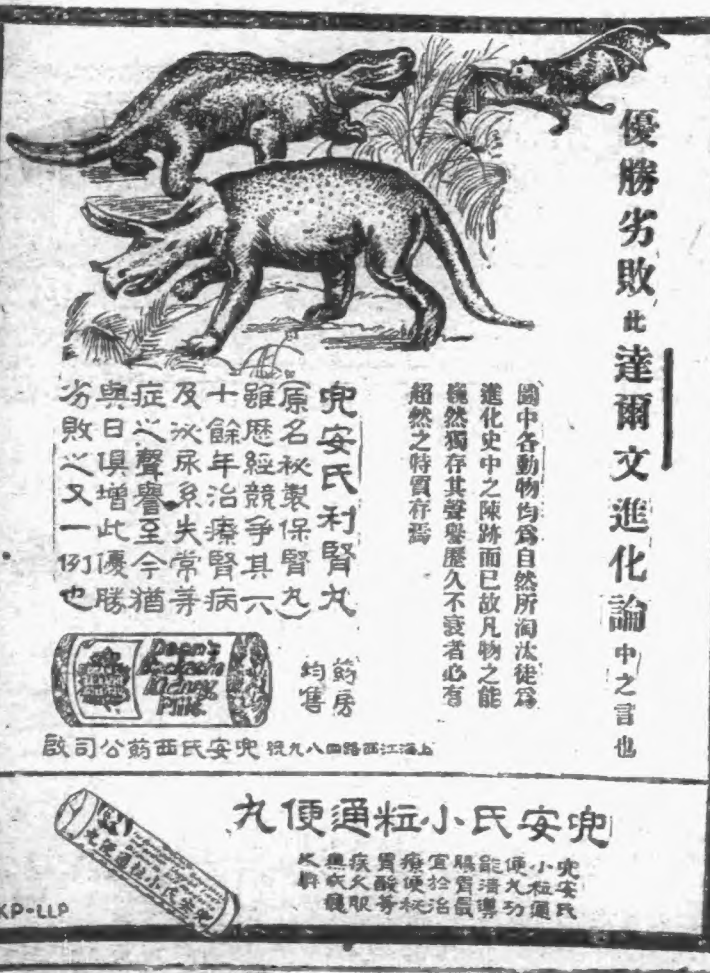 優勝劣敗此達爾文進化論中之言也
圖中各動物均爲自然所淘汰徒爲
進化史中之陳跡而已故凡物之能
巍然獨存其聲譽歷久不衰者必有
超然之特質存焉
兜安氏利腎丸
(原名秘製保腎丸)
雖歷經競爭其六
十餘年治療腎病
及泌尿系失常等
症之聲譽至今猶
與日俱增此優勝
劣敗之又一例也
Doan's
Backache
Kidney
Pills.
葯房
均售
上海江西路四八九號兜安氏西葯公司啟
兜安氏小粒通便丸
兜安氏
小粒通
便丸功
能清導
腸胃最
宜於治
療便秘
胃酸等
疾久服
無成癮
之弊
兜安氏小粒通便丸
KP-LLP